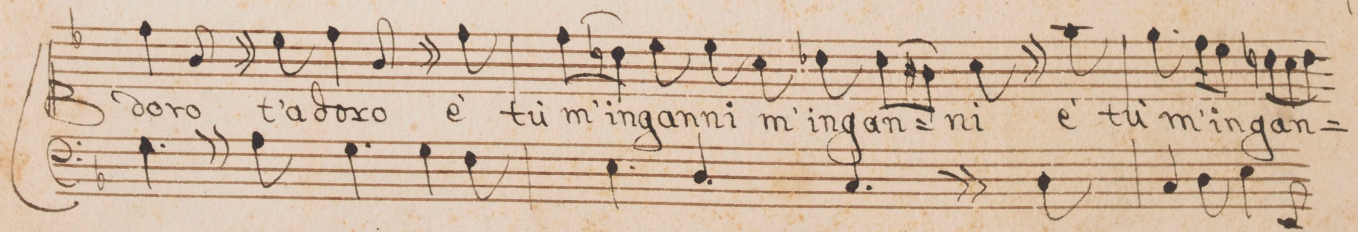 doro t'adoro è tù m'inganni m'ingan=ni è tù m'ingan=